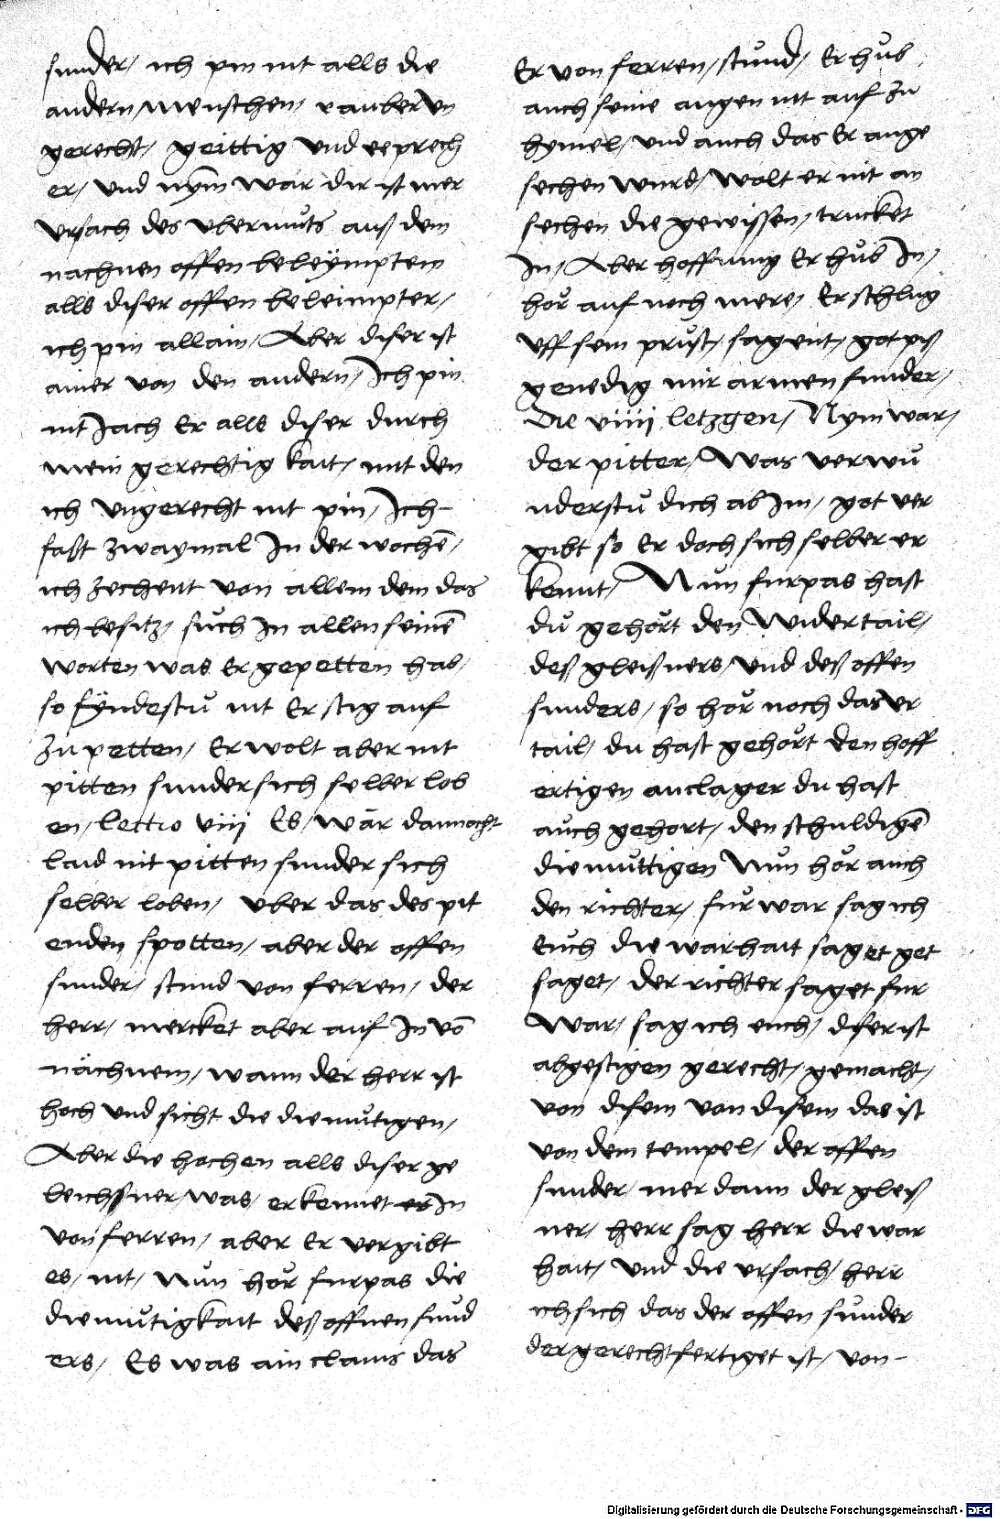 sunder/ ich pin nit alls die
andern/ menschen/ rauber Vn
gerecht/ geittig Vnd eeprech
er/ Vnd nym war dir ist mer
Vrsach des vbermuts auß dem
nachnen offen beleÿmptem
alls diser offen beleimpter/
ich pin allain/ Aber diser ist
ainer von den andern/ Ich pin
nit Jach Er alls diser durch
mein gerechtig kait/ mit den
ich Vngerecht nit pin/ Ich-
fast zwaymal In der wochē/
ich zechent von allem dem das
ich besitz/ such In allen seinē
worten was Er gepetten hab/
so fÿndestu nit Er stig auf
zu petten/ Er wolt aber nit
pitten sunder sich selber lob
en/ Lettio viij Eb/ wär dannocht
laid nit pitten sunder sich
selber loben/ vber das des pit
enden spotten/ aber der offen
sunder/ stund von ferren/ der
herr/ mercket aber auf In vō
nächnem/ wann der herr ist
hoch vnd sicht die diemutigen/
Aber die hochen alls diser ge
leichsner/ was/ erkennet er In
von ferren/ aber Er vergibt
es/ nit/ nun hör furpas die
diemutigkait deß offnen sund
ers/ Eb was ain clains das
Er von ferren/ stund/ Er hub
auch seine augen nit auf zu
hymel/ vnd auch das Er ange
sechen wurd/ wolt er nit an
sechen die gewissen/ trucket
In/ Aber hoffnung Er hub In/
hör auf noch mere/ Er schlug
vff sein prust/ sagent/ got piß
genedig mir armen sunder/
Die viiij letzgen/ Nym war/
der pitter/ was verwu
nderstu dich ab Im/ got ver
gibt so Er doch sich selber er
kennt/ Nun furpas hast
du gehört den widertail/
deß gleißners/ vnd deß offen
sunders/ so hör noch das vr
tail/ du hast gehört den hoff
ertigen anclager du hast
auch gehort/ den schuldigē
diemuttigen Nun hör auch
den richter/ fur war sag ich
Euch die warhait saget get
saget/ der richter saget fur
war/ sag ich euch/ diser ist
abgestigen gerecht/ gemacht/
von disem von disem das ist
von dem tempel/ der offen
sunder/ mer dann der gleiß
ner/ herr sag herr die war
hait/ Vnd die vrsach/ herr
ich sich das der offen sunder
der gerechtfertiget ist/ von-
Digitalisierung gefördert durch die Deutsche Forschungsgemeinschaft - DFG